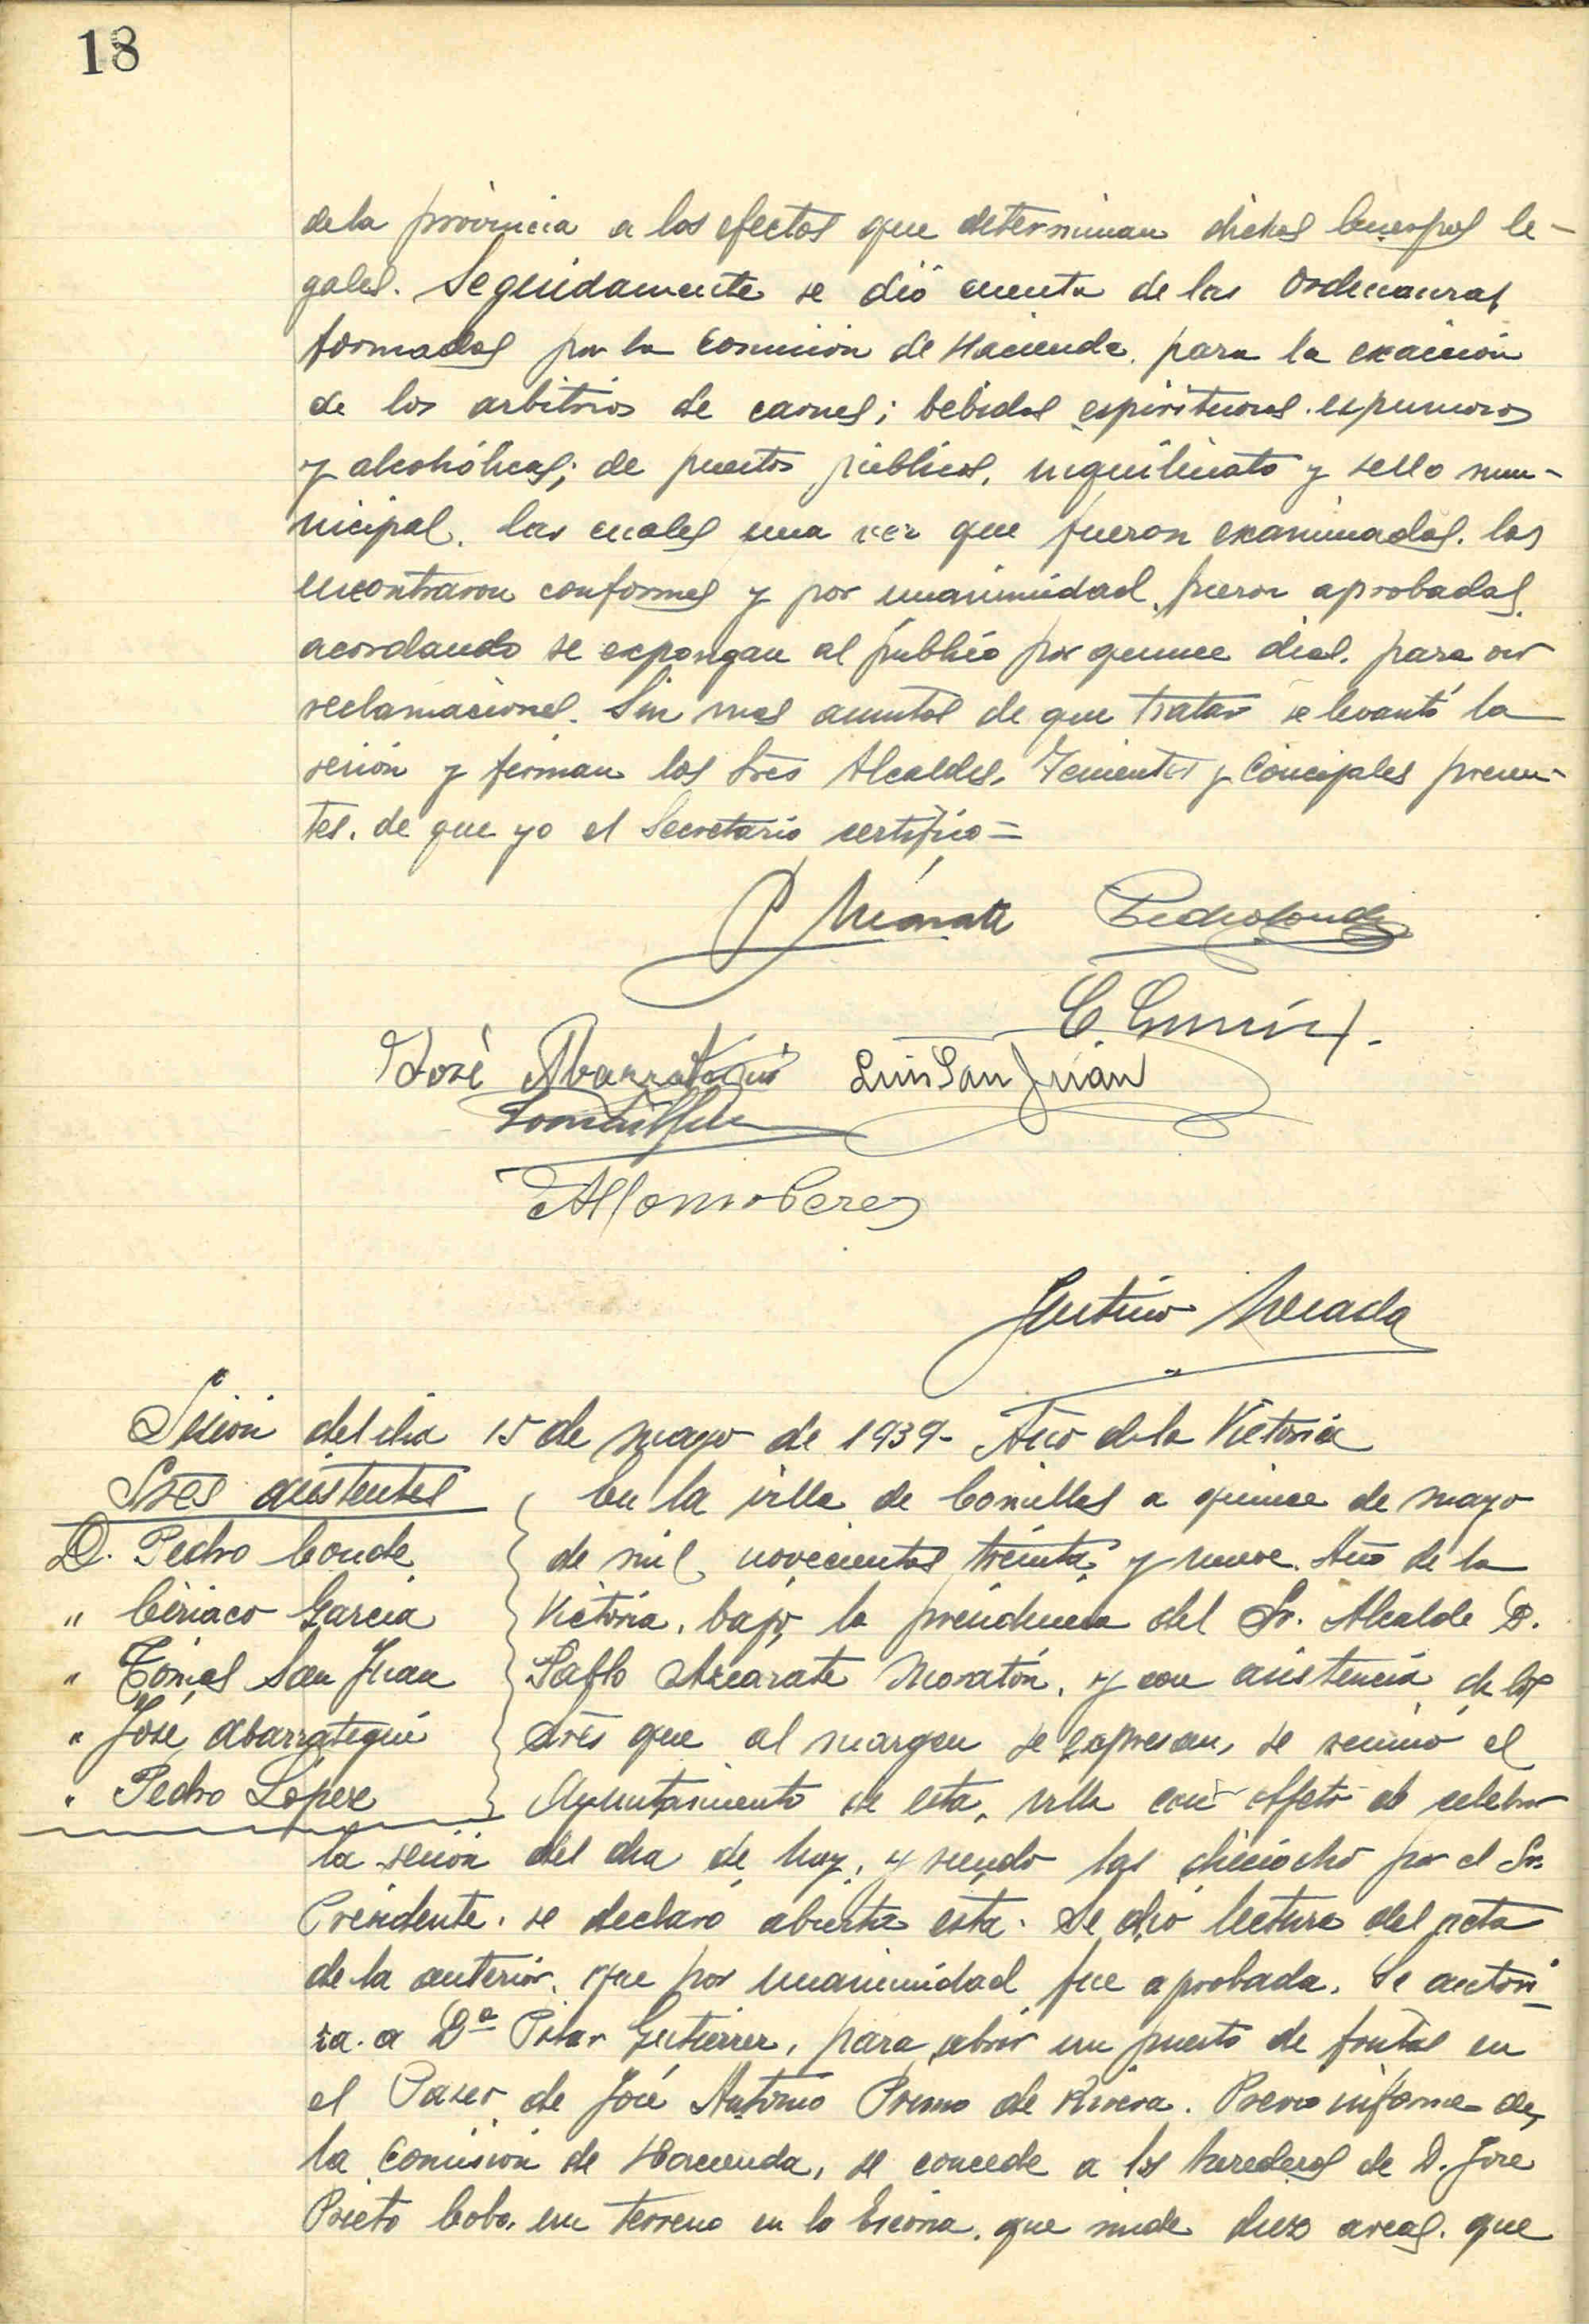 18
de la provincia a los efectos que determinan dichos Cuerpos le-
gales. Seguidamente se dió cuenta de las Ordenanzas
formadas por la Comisión de Hacienda, para la exacción
de los arbitrios de carnes; bebidas espirituosas, espumosas
y alcohólicas; de puestos públicos, inquilinato y sello mu-
nicipal. las cuales una vez que fueron examinadas, las
encontraron conformes y por unanimidad fueron aprobadas,
acordando se expongan al público por quince dias, para oir
reclamaciones. Sin mas asuntos de que tratar se levantó la
sesión y firman los Sres Alcaldes, Tenientes y Concejales presen-
tes, de que yo el Secretario certifico=
Pedro Conde
José Abarrategui Luis San Juan
Alfonso Perez
Sesión del dia 15 de mayo de 1939- Año de la Victoria
Sres asistentes
D. Pedro Conde
" Ciriaco Garcia
" Tomás San Juan
" José Abarrategui
" Pedro Lopez
En la villa de Comillas a quince de mayo
de mil novecientos treinta y nueve. Año de la
Victoria, bajo la presidencia del Sr. Alcalde D.
Pablo Azcarate Moratón, y con asistencia de los
Sres que al margen se expresan, se reunió el
Ayuntamiento de esta villa con objeto de celebrar
la sesión del dia de hoy, y siendo las dieciocho por el Sr.
Presidente, se declaró abierta esta. Se dió lectura del acta
de la anterior, que por unanimidad fue aprobada. Se autori-
za a Dª Pilar Gutierrez, para abrir un puesto de frutas en
el Paseo de José Antonio Primo de Rivera. Previo informe de
la Comisión de Hacienda, se concede a los herederos de D. Jose
Prieto Cobo, un terreno en la que mide diez areas, que